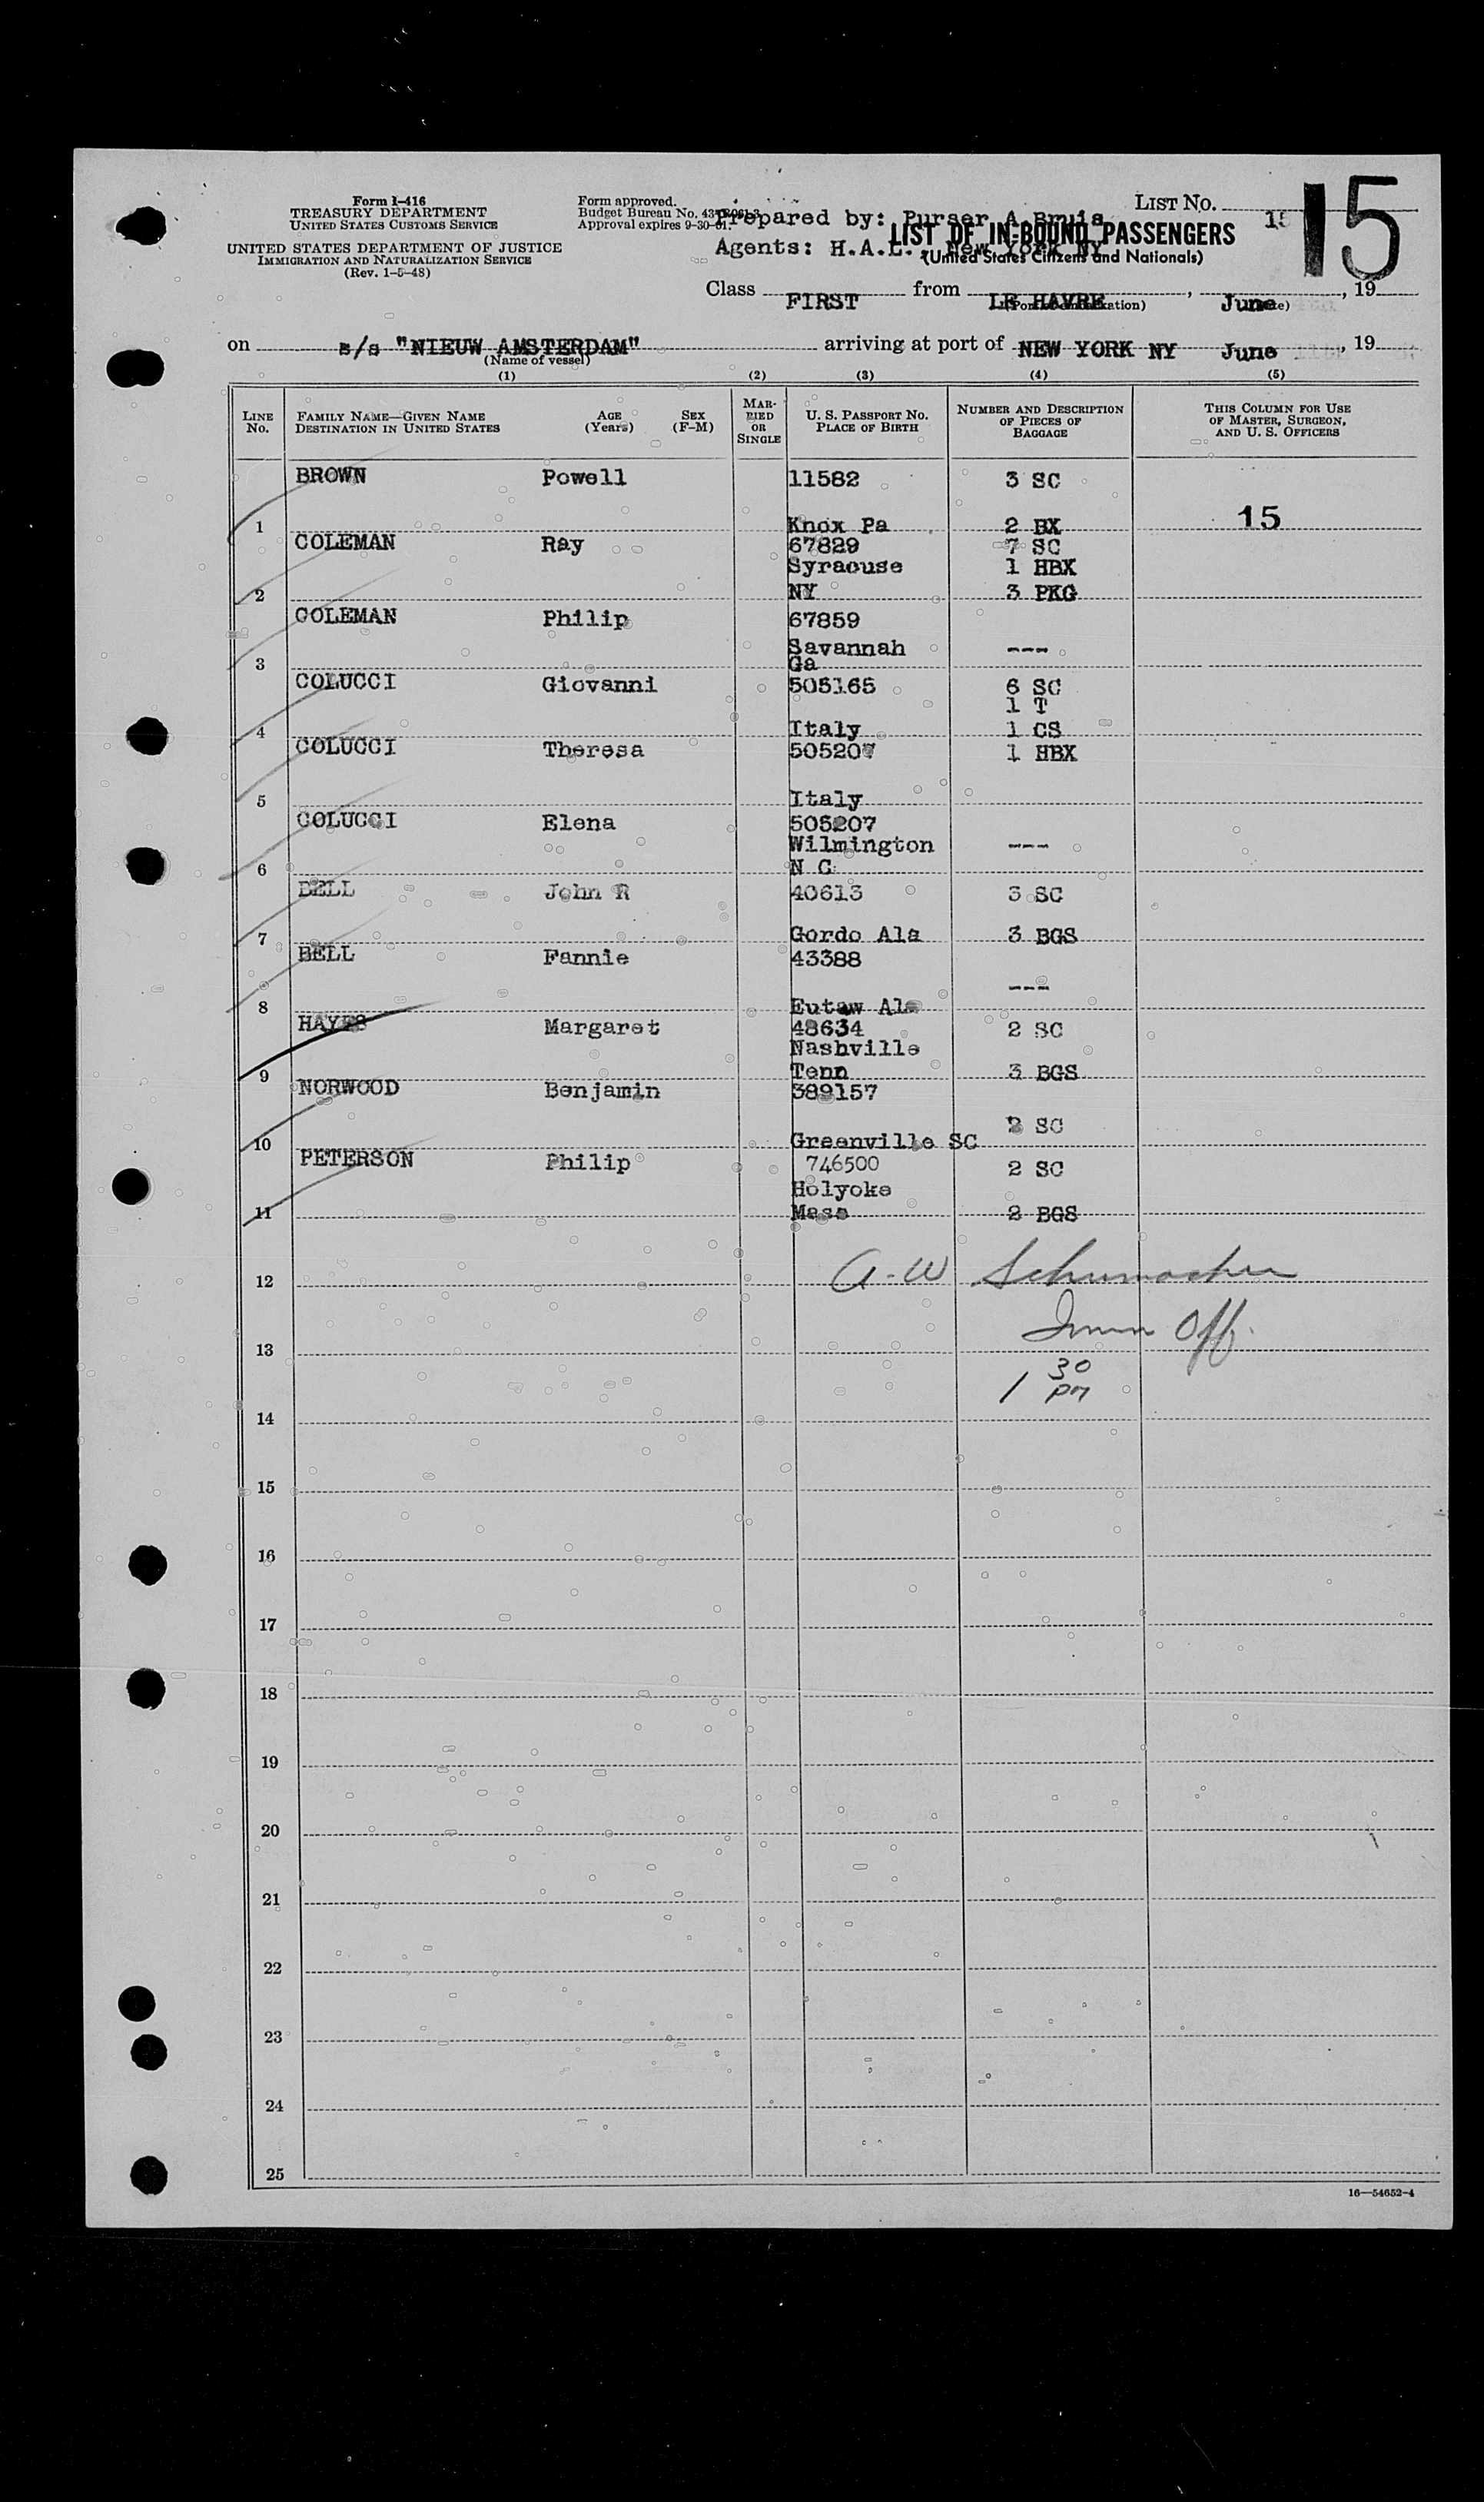 Form I-416
TREASURY DEPARTMENT
UNITED STATES CUSTOMS SERVICE
UNITED STATES DEPARTMENT OF JUSTICE
IMMIGRATION AND NATURALIZATION SERVICE
(Rev. 1-5-48)
Form approved.
Budget Bureau No.
Approval expires 9-30-
Prepared by: Purser A.Bruia
Agents: H.A.L. New York NY
LIST NO. 15
15
LIST OF IN-BOUND PASSENGERS
(United States Citizens and Nationals)
Class FIRST from LE HAVRE, June, 19
on s/s "NIEUW AMSTERDAM" arriving at port of NEW YORK NY June, 19
(Name of vessel)
(1) (2) (3) (4) (5)
LINE NO.
FAMILY NAME—GIVEN NAME
DESTINATION IN UNITED STATES
AGE (Years)
SEX (F-M)
MARRIED OR SINGLE
U. S. PASSPORT NO.
PLACE OF BIRTH
NUMBER AND DESCRIPTION OF PIECES OF BAGGAGE
THIS COLUMN FOR USE OF MASTER, SURGEON, AND U. S. OFFICERS
BROWN Powell 11582 3 SC
15
1 Knox Pa 2 BX
COLEMAN Ray 67829 7 SC
Syracuse 1 HBX
2 NY 3 PKG
COLEMAN Philip 67859
Savannah ---
3 Ga
COLUCCI Giovanni 505165 6 SC
1 T
4 Italy 1 CS
COLUCCI Theresa 505207 1 HBX
5 Italy
COLUCCI Elena 505207
Wilmington ---
6 N C
BELL John R 40613 3 SC
7 Gordo Ala 3 BGS
BELL Fannie 43388
---
8 Eutaw Ala
HAYES Margaret 48634 2 SC
Nashville
9 Tenn 3 BGS
NORWOOD Benjamin 389157
2 SC
10 Greenville SC
PETERSON Philip 746500 2 SC
Holyoke
11 Mass 2 BGS
12 A-W Schumacher
13 Imm Off.
1 30 pm
14
15
16
17
18
19
20
21
22
23
24
25
16—54652-4